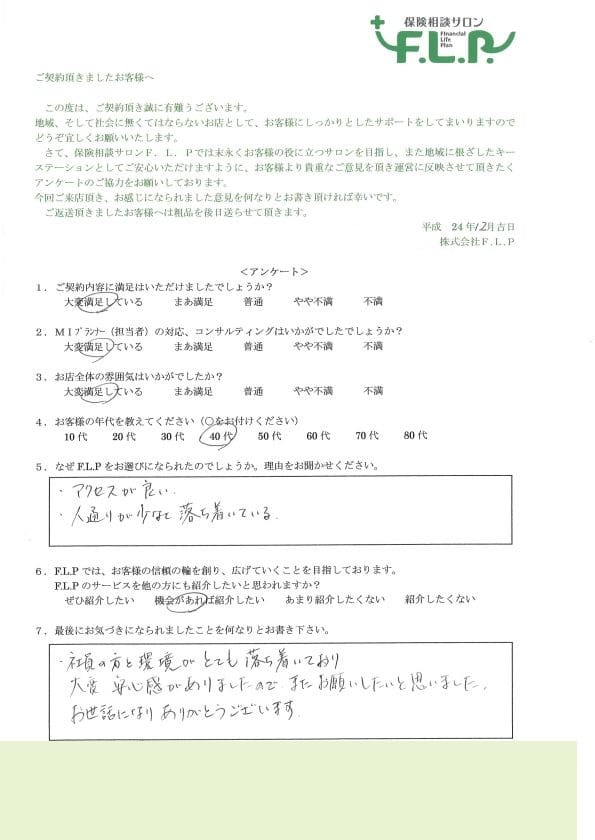 保険相談サロン
F.L.P.
Financial
Life
Plan
ご契約頂きましたお客様へ
この度は、ご契約頂き誠に有難うございます。
地域、そして社会に無くてはならないお店として、お客様にしっかりとしたサポートをしてまいりますので
どうぞ宜しくお願いいたします。
さて、保険相談サロンF．L．Pでは末永くお客様の役に立つサロンを目指し、また地域に根ざしたキー
ステーションとしてご安心いただけますように、お客様より貴重なご意見を頂き運営に反映させて頂きたく
アンケートのご協力をお願いしております。
今回ご来店頂き、お感じになられました意見を何なりとお書き頂ければ幸いです。
ご返送頂きましたお客様へは粗品を後日送らせて頂きます。
平成 24年12月吉日
株式会社F.L.P
＜アンケート＞
1．ご契約内容に満足はいただけましたでしょうか？
大変満足している まあ満足 普通 やや不満 不満
2．MIﾌﾟﾗﾝﾅｰ（担当者）の対応、コンサルティングはいかがでしたでしょうか？
大変満足している まあ満足 普通 やや不満 不満
3．お店全体の雰囲気はいかがでしたか？
大変満足している まあ満足 普通 やや不満 不満
4．お客様の年代を教えてください（○をお付けください）
10代 20代 30代 40代 50代 60代 70代 80代
5．なぜF.L.Pをお選びになられたのでしょうか。理由をお聞かせください。
・アクセスが良い.
・人通りが少なく落ち着いている.
6．F.L.Pでは、お客様の信頼の輪を創り、広げていくことを目指しております。
F.L.Pのサービスを他の方にも紹介したいと思われますか？
ぜひ紹介したい 機会があれば紹介したい あまり紹介したくない 紹介したくない
7．最後にお気づきになられましたことを何なりとお書き下さい。
・社員の方と環境がとても落ち着いており
大変 安心感がありましたので、またお願いしたいと思いました.
お世話になりありがとうございます.